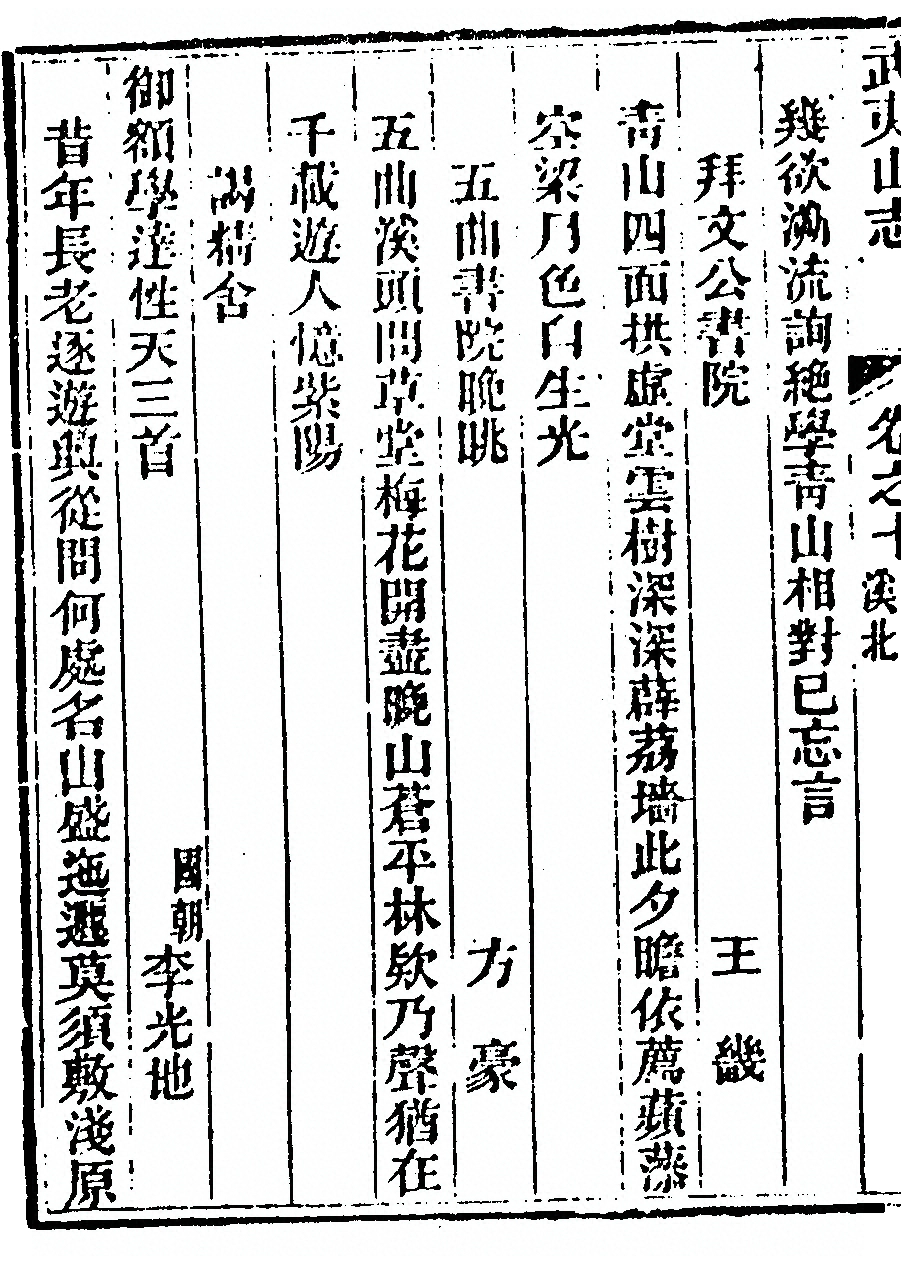 武夷山志 卷之十 溪北
幾欲泝流詢絶學青山相對已忘言
拜文公書院 王畿
青山四面拱虛堂雲樹深深薜荔墻此夕瞻依薦蘋藻
空梁月色自生光
五曲書院晚眺 方豪
五曲溪頭問草堂梅花開盡晚山蒼平林欸乃聲猶在
千載遊人憶紫陽
謁精舍
御額學達性天三首 國朝李光地
昔年長老逐遊輿從問何處名山盛迤邐莫須敷淺原